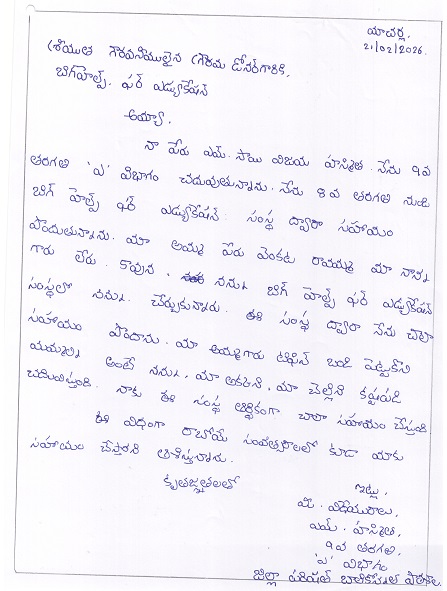 యాచర్ల,
21/02/2026.
శ్రీయుత గౌరవనీయులైన గ్రౌతమ డోనర్‌గారికి,
బిగ్‌హెల్ప్ ఫర్ ఎడ్యుకేషన్
అయ్యా,
నా పేరు ఎమ్. సాయి విజయ హన్సిత. నేను 9వ
తరగతి 'ఎ' విభాగం చదువుతున్నాను. నేను 8వ తరగతి నుండి
బిగ్ హెల్ప్ ఫర్ ఎడ్యుకేషన్ సంస్థ ద్వారా సహాయం
పొందుతున్నాను. మా అమ్మ పేరు వెంకట రావమ్మ మా నాన్న
గారు లేరు. కావున నన్ను బిగ్ హెల్ప్ ఫర్ ఎడ్యుకేషన్
సంస్థలో నన్ను చేర్చుకున్నారు. ఈ సంస్థ ద్వారా నేను చాలా
సహాయం పొందాను. మా అమ్మగారు టిఫిన్ బండి పెట్టుకొని
మమ్మల్ని అంటే నన్ను, మా అక్కని, మా చెల్లిని కష్టపడి
చదివిస్తుంది. నాకు ఈ సంస్థ ఆర్థికంగా చాలా సహాయం చేస్తుంది.
ఈ విధంగా రాబోయే సంవత్సరాలలో కూడా మాకు
సహాయం చేస్తారని ఆశిస్తున్నాను.
కృతజ్ఞతలతో
ఇట్లు,
మీ విధేయురాలు,
ఎమ్. హన్సిత,
9వ తరగతి,
'ఎ' విభాగం
జిల్లా పరిషత్ బాలికోన్నత పాఠశాల